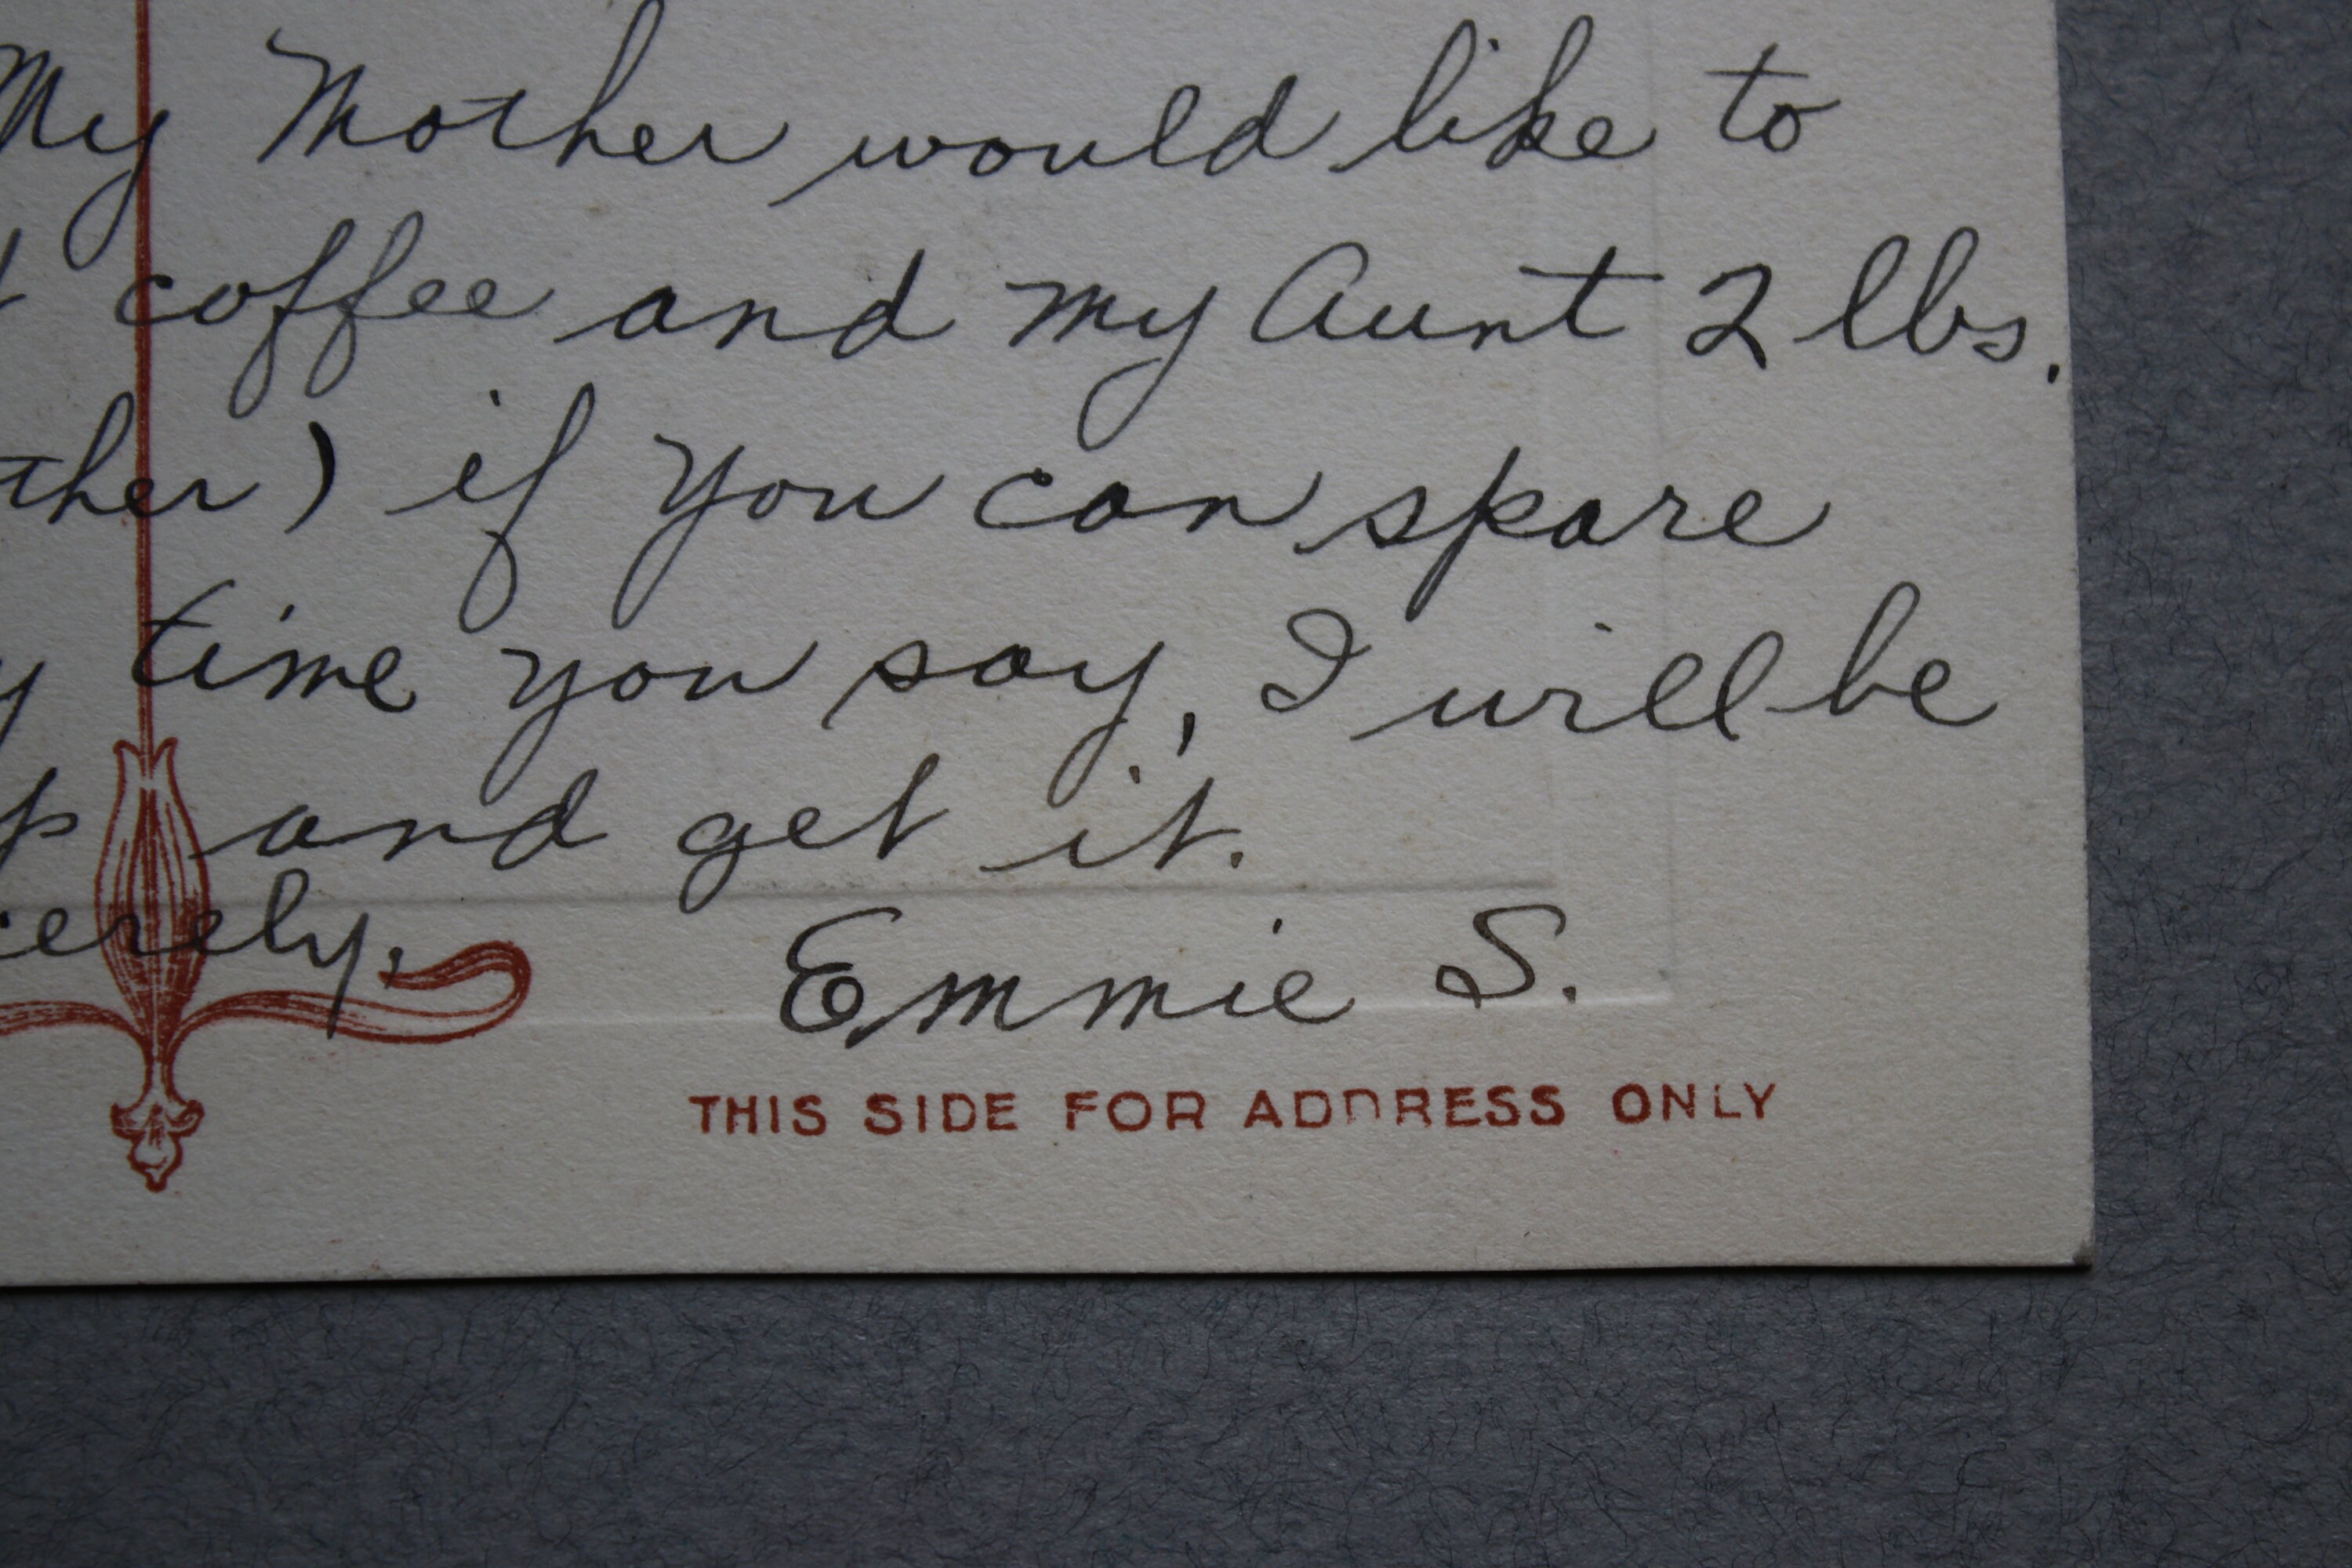 My Mother would like to
coffee and my Aunt 2 lbs.
ther) if you can spare
time you say, I will be
and get it.
erely, Emmie S.
THIS SIDE FOR ADDRESS ONLY